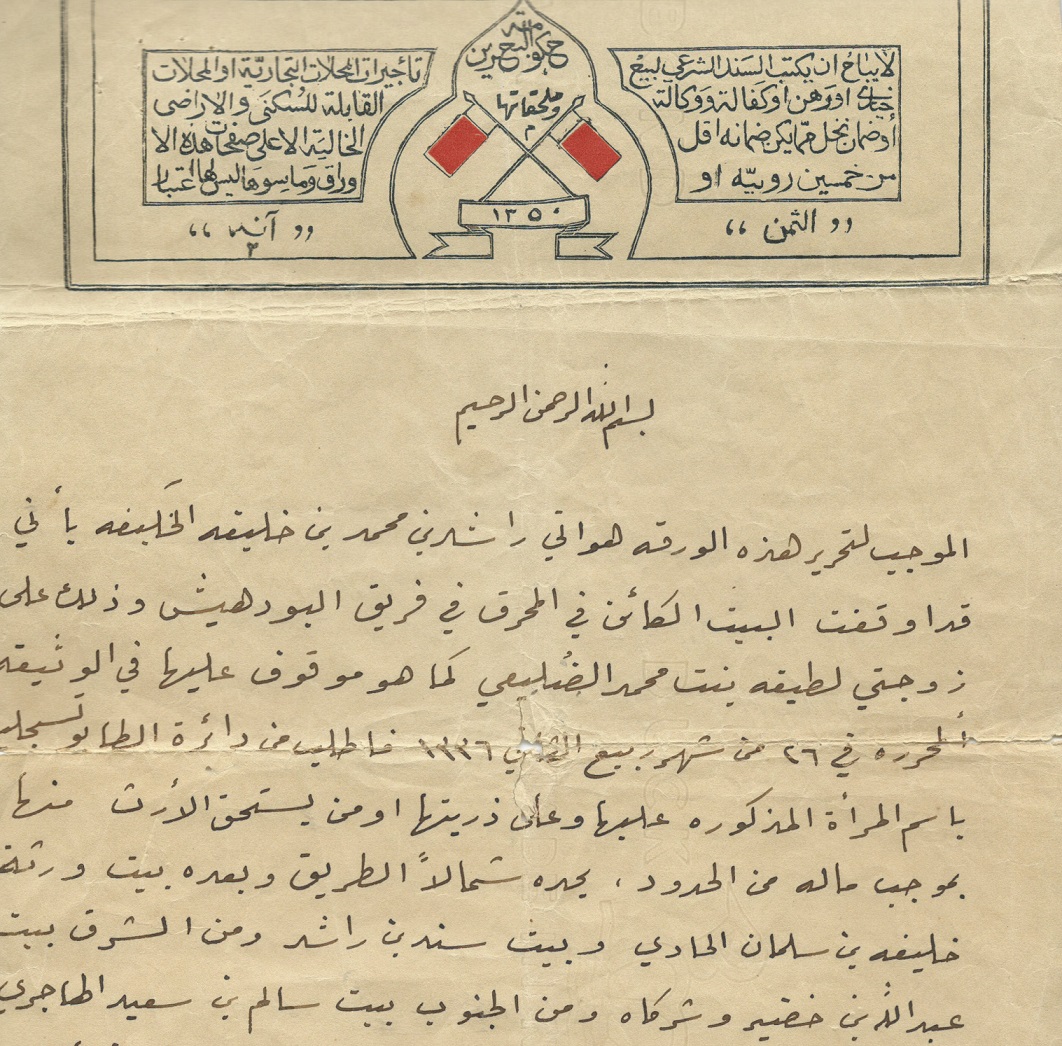 حكومة البحرين
وملحقاتها
١٣٥٠
لايباح ان يكتب السند الشرعي لبيع
او رهن او كفالة ووكالة
أوضمان نخل مما يكن ضمانه اقل
من خمسين روبيّه او
,, الثمن ,,
تأجيرات المحلات التجاريّة او المحلات
القابلة للسُكنَى والاراضى
الخاليَة الا على صفحات هذه الا
وراق وَمَا سِوَها ليسَ لها اعتبار
,, آنه ,,
٢
بسم الله الرحمن الرحيم
الموجب لتحرير هذه الورقه هو اني راشد بن محمد بن خليفه الخليفه بأني
قد اوقفت البيت الكائن في المحرق في فريق البودهيش وذلك على
زوجتي لطيفه بنت محمد الضليعي كما هو موقوف عليها في الوثيقه
المحرره في ٢٦ من شهر ربيع الثاني ١٣٣٦ فاطلب من دائرة الطابو تسجله
باسم المرأة المذكوره عليها وعلى ذريتها او من يستحق الأرث منها
بموجب ماله من الحدود، يحده شمالاً الطريق وبعده بيت ورثة
خليفه بن سلمان الحادي وبيت سند بن راشد ومن الشرق بيت
عبدالله بن خضير وشركاه ومن الجنوب بيت سالم بن سعيد الهاجري